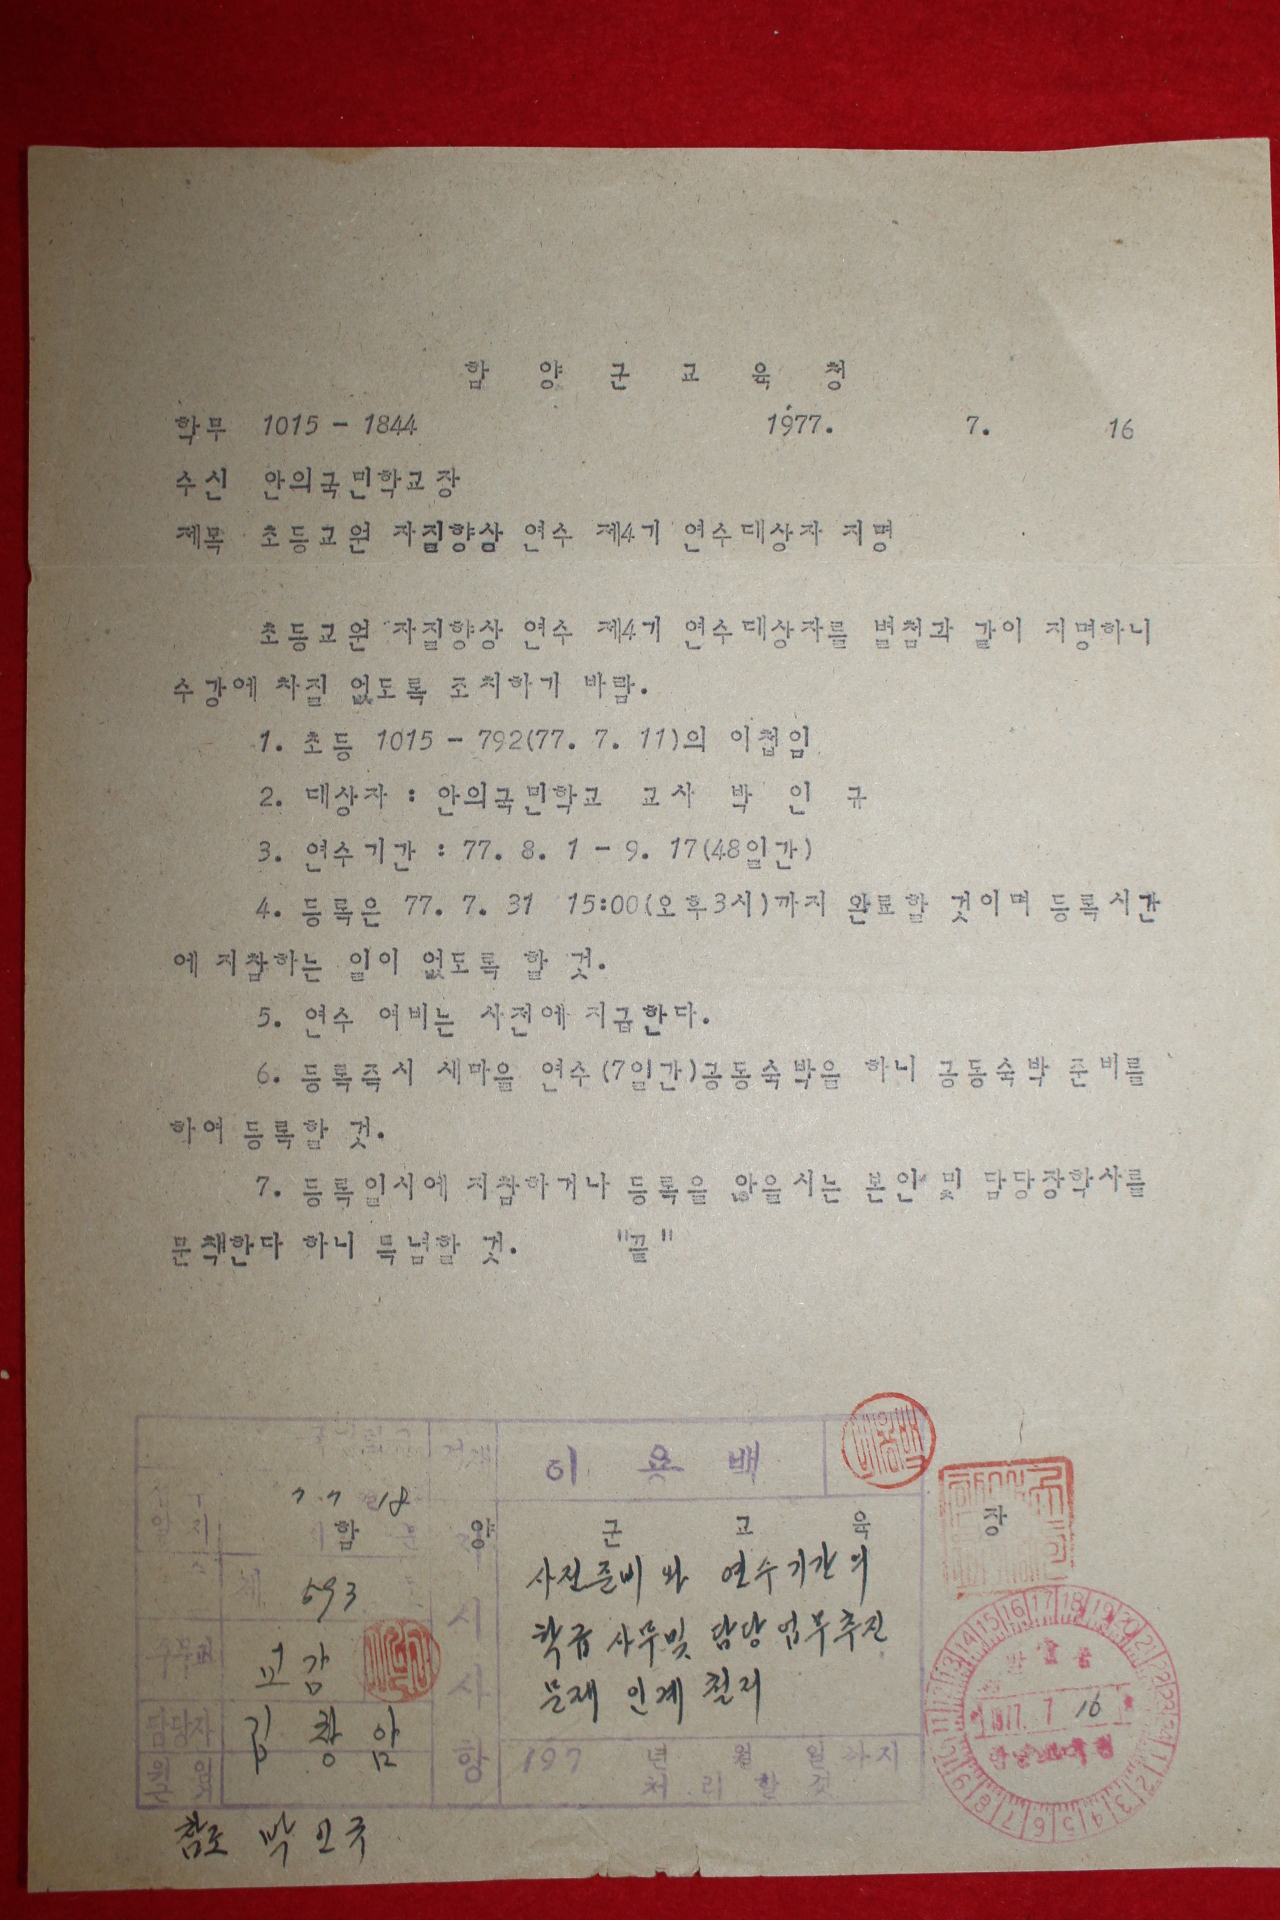 함 양 군 교 육 청
학무 1015 - 1844 1977. 7. 16
수신 안의국민학교장
제목 초등교원 자질향상 연수 제4기 연수대상자 지명
초등교원 자질향상 연수 제4기 연수대상자를 별첨과 같이 지명하니
수강에 차질 없도록 조치하기 바람.
1. 초등 1015 - 792(77. 7. 11)의 이첩임
2. 대상자 : 안의국민학교 교사 박 인 규
3. 연수기간 : 77. 8. 1 - 9. 17(48일간)
4. 등록은 77. 7. 31 15:00(오후3시)까지 완료할 것이며 등록시간
에 지참하는 일이 없도록 할 것.
5. 연수 여비는 사전에 지급한다.
6. 등록즉시 새마을 연수(7일간)공동숙박을 하니 공동숙박 준비를
하여 등록할 것.
7. 등록일시에 지참하거나 등록을 않을시는 본인 및 담당장학사를
문책한다 하니 특념할 것. "끝"
이 용 백
77 18
함 양 군 교 육 장
제 693
시
사
항
사전준비와 연수기간의
학급 사무및 담당업무추진
문제 인계 철저
교감
담당자 김창암
197 년 월 일까지
처 리 할 것
1977. 7 16
참조 박인규